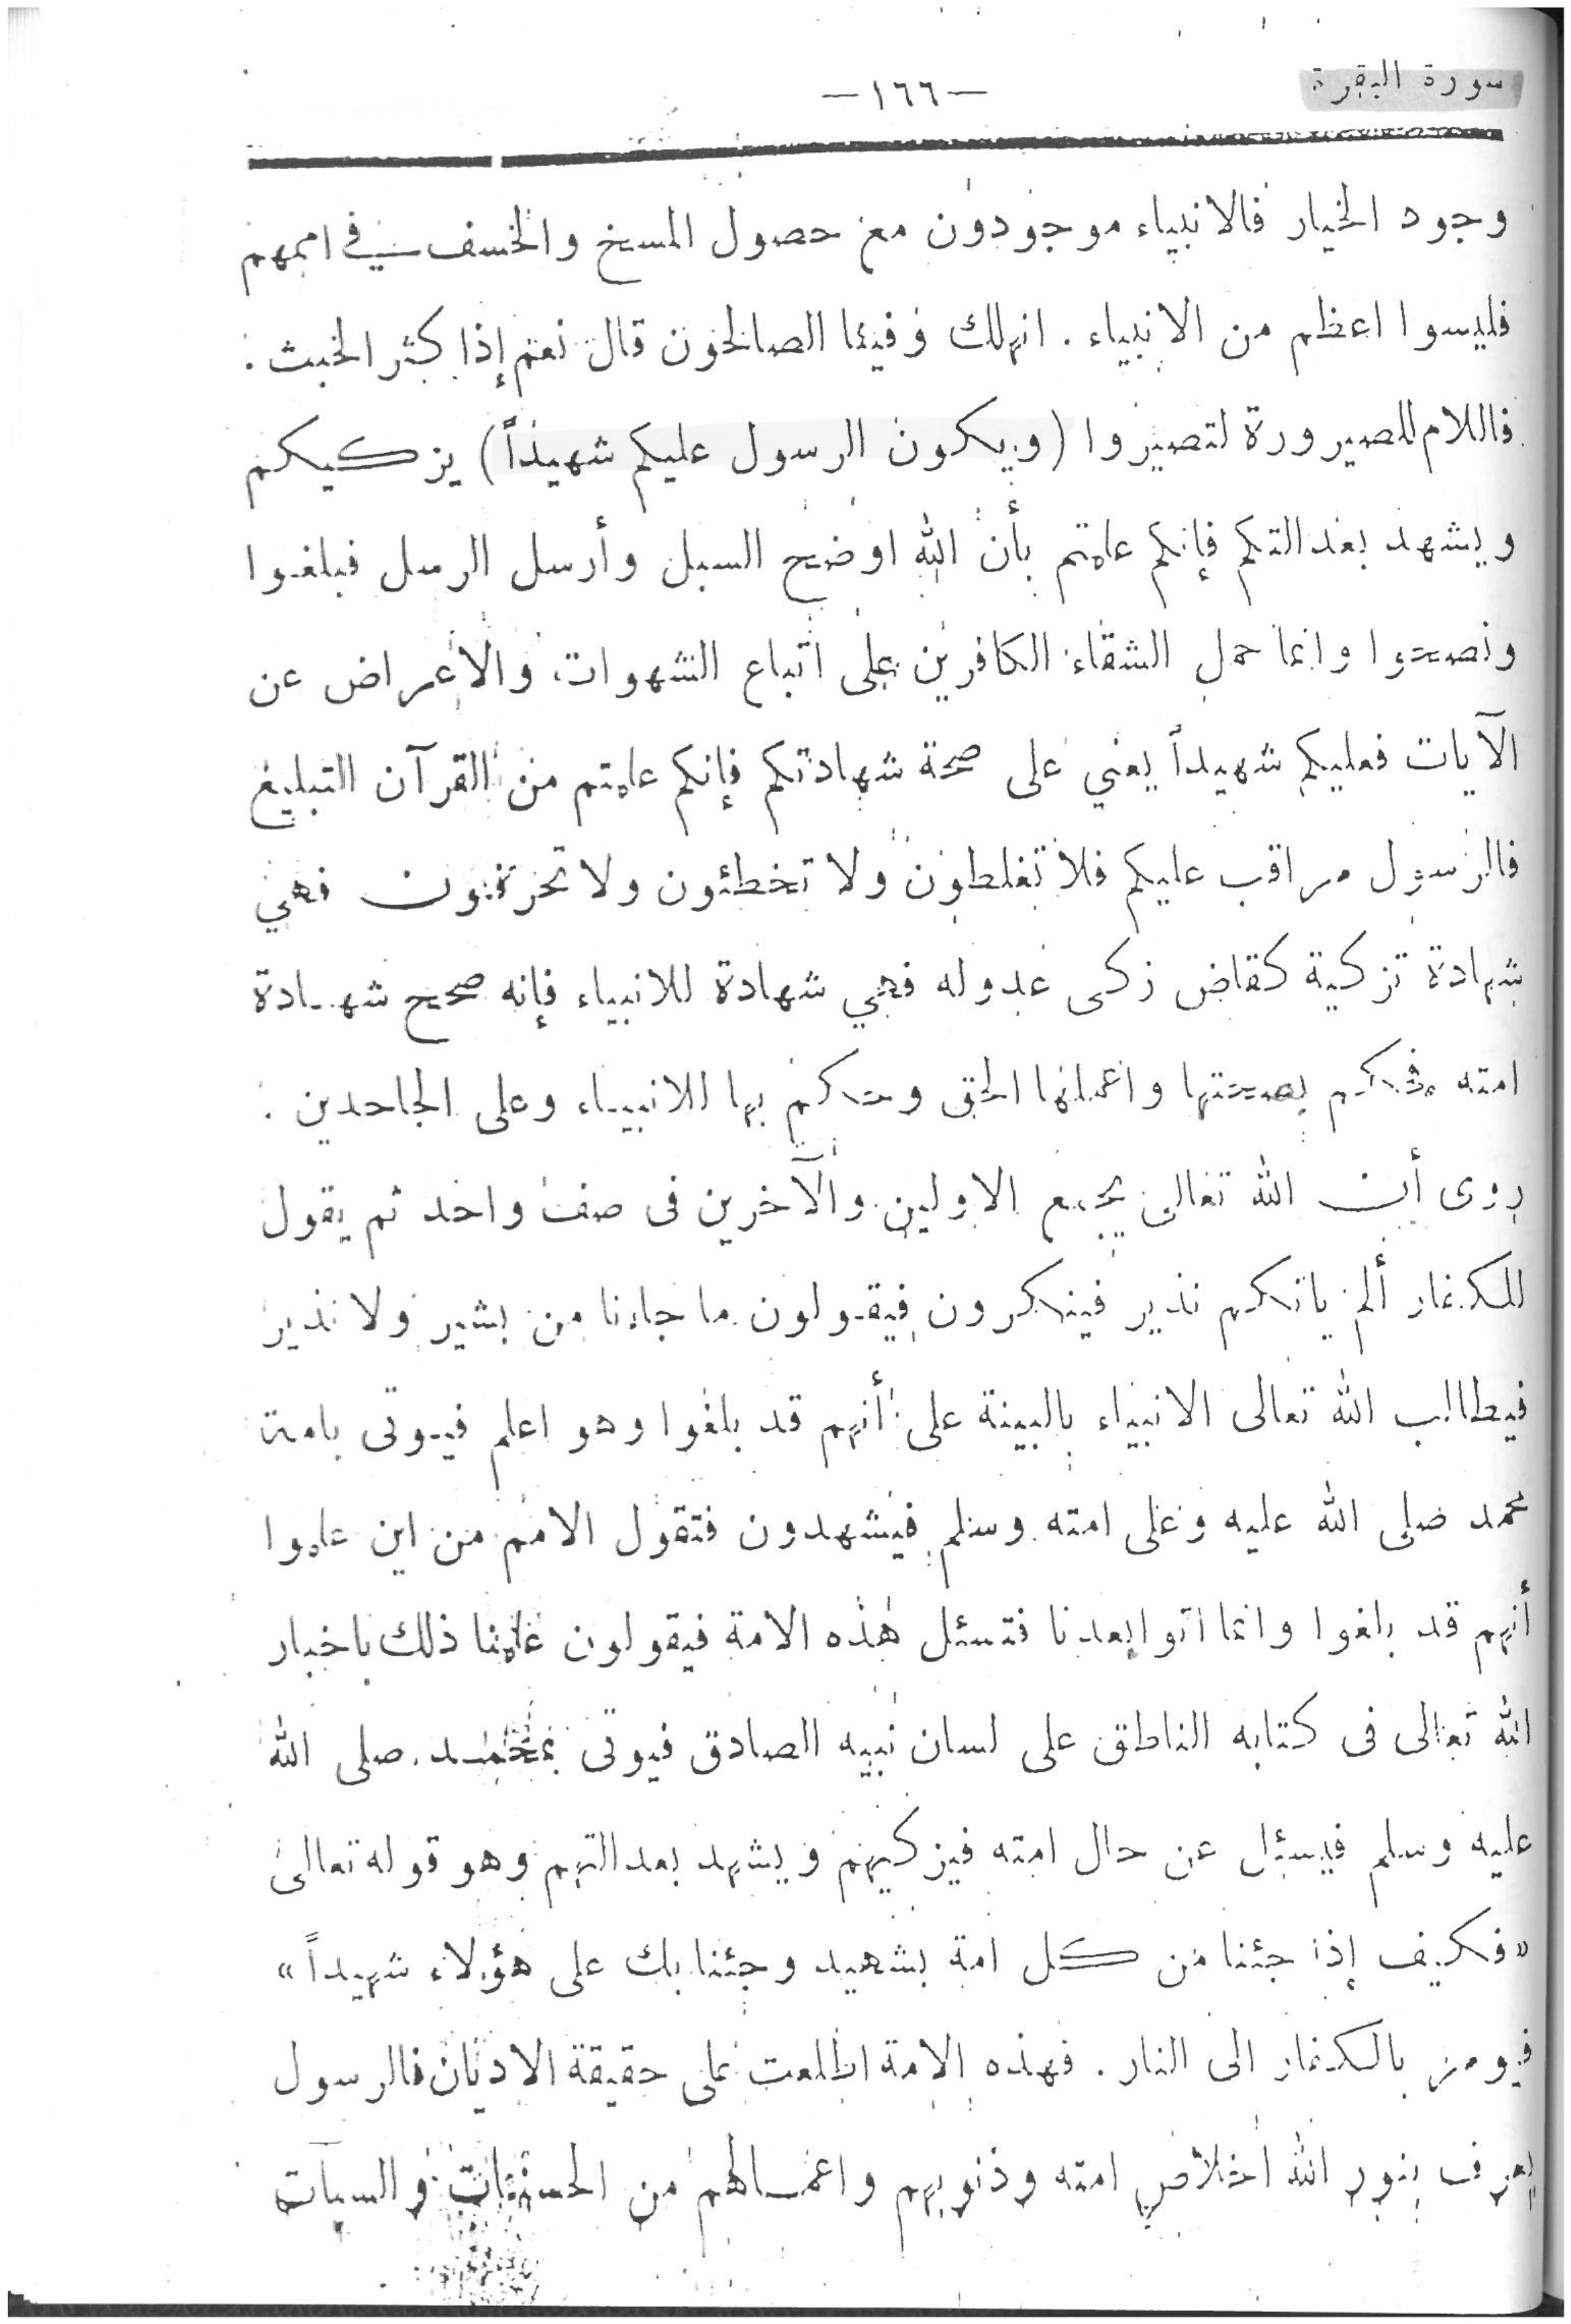 سورة البقرة
—١٦٦—
وجود الخيار فالانبياء موجودون مع حصول المسخ والخسف في اممهم
فليسوا اعظم من الانبياء . انهلك وفينا الصالحون قال نعم إذا كثر الخبث :
فاللام للصيرورة لتصيروا (ويكون الرسول عليكم شهيداً) يزكيكم
ويشهد بعدالتكم فإنكم علمتم بأن الله اوضح السبل وأرسل الرسل فبلغوا
ونصحوا وانما حمل الشقاء الكافرين على اتباع الشهوات والاعراض عن
الآيات فعليكم شهيداً يعني على صحة شهادتكم فإنكم علمتم من القرآن التبليغ
فالرسول مراقب عليكم فلا تغلطون ولا تخطئون ولا تحرفون فهي
شهادة تزكية كقاض زكى عدوله فهي شهادة للانبياء فإنه صحح شهادة
امته فحكم بصحتها واعملها الحق وحكم بها للانبياء وعلى الجاحدين :
روى أن الله تعالى يجمع الاولين والآخرين فى صف واحد ثم يقول
للكفار ألم ياتكم نذير فينكرون فيقولون ما جاءنا من بشير ولا نذير
فيطالب الله تعالى الانبياء بالبينة على أنهم قد بلغوا وهو اعلم فيوتى بامة
محمد صلى الله عليه وعلى امته وسلم فيشهدون فتقول الامم من اين علموا
أنهم قد بلغوا وانما اتوا بعدنا فتسئل هذه الامة فيقولون علمنا ذلك باخبار
الله تعالى فى كتابه الناطق على لسان نبيه الصادق فيوتى بمحمد صلى الله
عليه وسلم فيسئل عن حال امته فيزكيهم ويشهد بعدالتهم وهو قوله تعالى
«فكيف إذا جئنا من كل امة بشهيد وجئنا بك على هؤلاء شهيداً»
فيومر بالكفار الى النار . فهذه الامة اطلعت على حقيقة الاديان فالرسول
يعرف بنور الله اخلاص امته وذنوبهم واعمالهم من الحسنات والسيآت